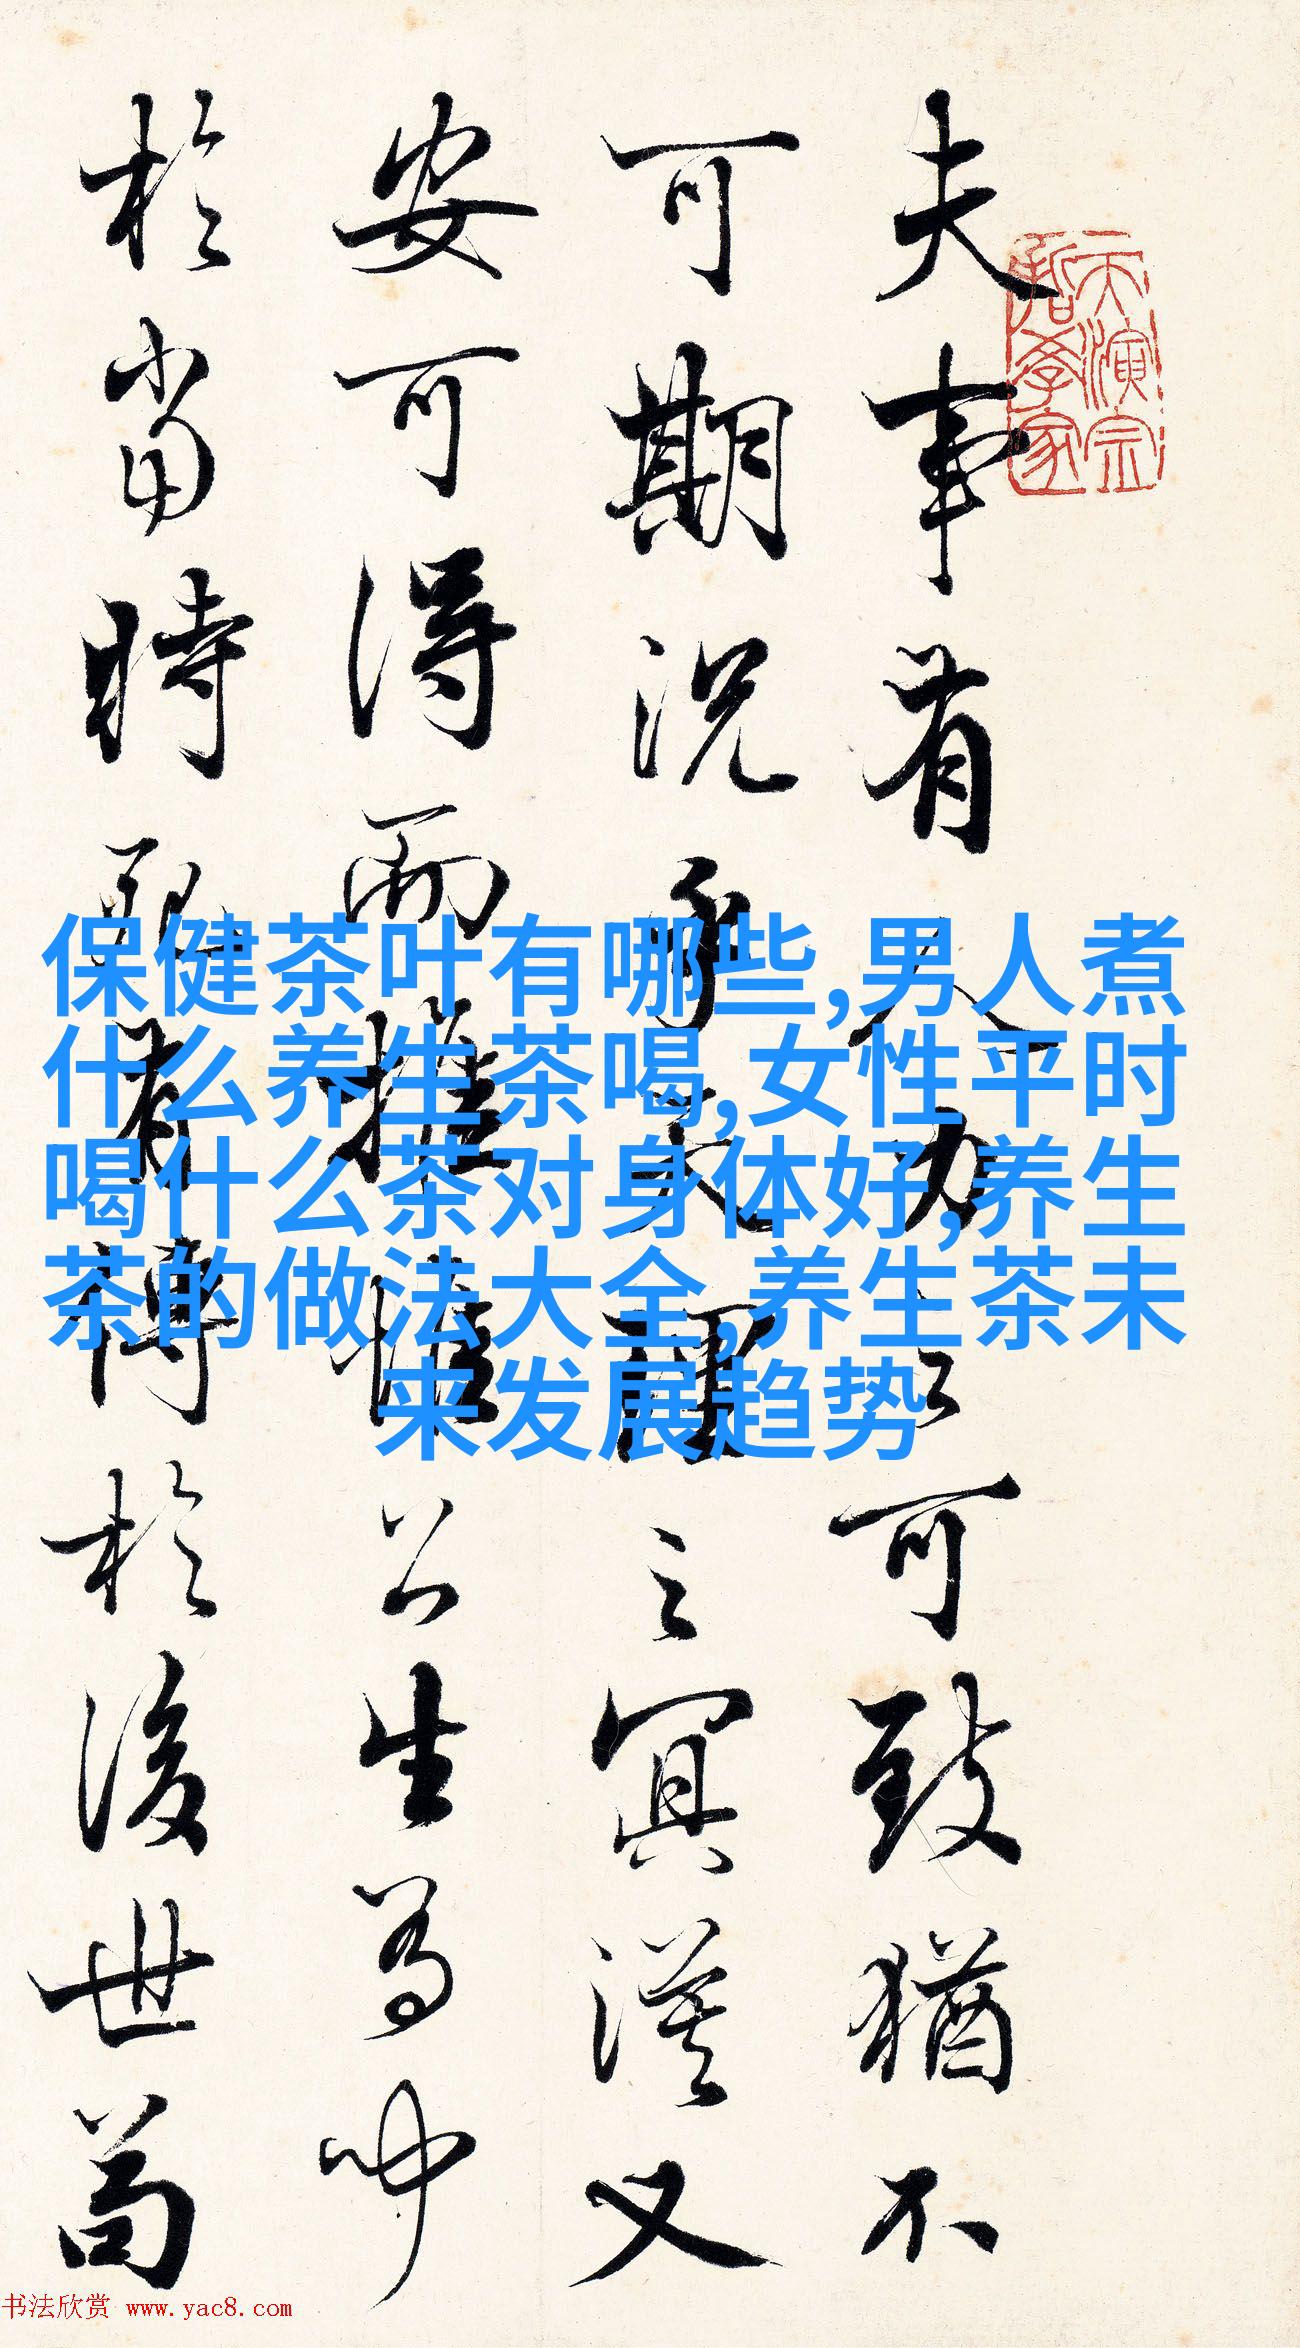 夫事有人力之可致猶不
可期況乎天理之冥漠又
安可得而推惟公生有聞
於當時死有傳於後世苟
天演宗
哲學家
保健茶叶有哪些,男人煮
什么养生茶喝,女性平时
喝什么茶对身体好,养生
茶的做法大全,养生茶未
来发展趋势
书法欣赏 www.yac8.com